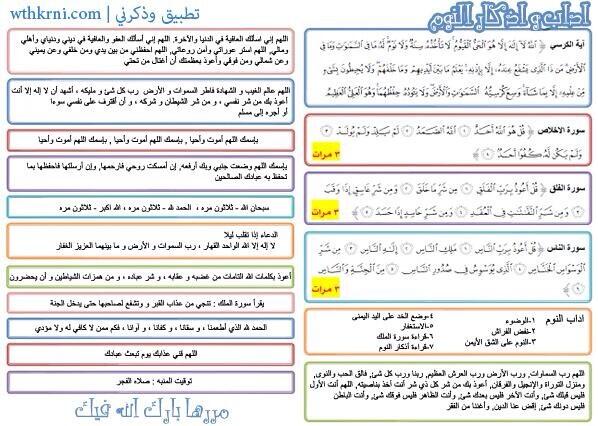 آداب و اذكار النوم
تطبيق وذكرني | wthkrni.com
آية الكرسي ﴿ ٱللَّهُ لَآ إِلَٰهَ إِلَّا هُوَ ٱلْحَىُّ ٱلْقَيُّومُ لَا تَأْخُذُهُۥ سِنَةٌ وَلَا نَوْمٌ لَّهُۥ مَا فِى ٱلسَّمَٰوَٰتِ وَمَا فِى
ٱلْأَرْضِ مَن ذَا ٱلَّذِى يَشْفَعُ عِندَهُۥٓ إِلَّا بِإِذْنِهِۦ يَعْلَمُ مَا بَيْنَ أَيْدِيهِمْ وَمَا خَلْفَهُمْ وَلَا يُحِيطُونَ بِشَىْءٍ
مِّنْ عِلْمِهِۦٓ إِلَّا بِمَا شَآءَ وَسِعَ كُرْسِيُّهُ ٱلسَّمَٰوَٰتِ وَٱلْأَرْضَ وَلَا يَـُٔودُهُۥ حِفْظُهُمَا وَهُوَ ٱلْعَلِىُّ ٱلْعَظِيمُ
سورة الاخلاص ﴿ قُلْ هُوَ ٱللَّهُ أَحَدٌ ١ ٱللَّهُ ٱلصَّمَدُ ٢ لَمْ يَلِدْ وَلَمْ يُولَدْ ٣
وَلَمْ يَكُن لَّهُۥ كُفُوًا أَحَدٌۢ ٤
٣ مرات
سورة الفلق ﴿ قُلْ أَعُوذُ بِرَبِّ ٱلْفَلَقِ ١ مِن شَرِّ مَا خَلَقَ ٢ وَمِن شَرِّ غَاسِقٍ إِذَا وَقَبَ
٣ وَمِن شَرِّ ٱلنَّفَّٰثَٰتِ فِى ٱلْعُقَدِ ٤ وَمِن شَرِّ حَاسِدٍ إِذَا حَسَدَ ٥
٣ مرات
سورة الناس ﴿ قُلْ أَعُوذُ بِرَبِّ ٱلنَّاسِ ١ مَلِكِ ٱلنَّاسِ ٢ إِلَٰهِ ٱلنَّاسِ ٣ مِن شَرِّ
ٱلْوَسْوَاسِ ٱلْخَنَّاسِ ٤ ٱلَّذِى يُوَسْوِسُ فِى صُدُورِ ٱلنَّاسِ ٥ مِنَ ٱلْجِنَّةِ وَٱلنَّاسِ ٦
٣ مرات
اداب النوم
١-الوضوء
٢-نفض الفراش
٣-النوم على الشق الأيمن
٤-وضع الخد على اليد اليمنى
٥-الاستغفار
٦-قراءة سورة الملك
٧-قراءة أذكار النوم
اللهم رب السماوات, ورب الأرض ورب العرش العظيم, ربنا ورب كل شئ, فالق الحب والنوى,
ومنزل التوراة والإنجيل والفرقان, أعوذ بك من شر كل ذي شر أنت آخذ بناصيته, اللهم أنت الأول
فليس قبلك شئ, وأنت الآخر فليس بعدك شئ, وأنت الظاهر فليس فوقك شئ وأنت الباطن
فليس دونك شئ, إقض عنا الدين, وأغننا من الفقر
اللهم إني اسألك العافية في الدنيا والآخرة. اللهم إني أسألك العفو والعافية في ديني ودنياي وأهلي
ومالي, اللهم استر عوراتي وآمن روعاتي, اللهم احفظني من بين يدي ومن خلفي وعن يميني
وعن شمالي ومن فوقي وأعوذ بعظمتك أن أغتال من تحتي
اللهم عالم الغيب و الشهادة فاطر السموات و الأرض رب كل شئ و مليكه ، أشهد أن لا إله إلا أنت
أعوذ بك من شر نفسي ، و من شر الشيطان و شركه ، و أن أقترف على نفسي سوءا
أو أجره إلى مسلم
بإسمك اللهم أموت وأحيا , بإسمك اللهم أموت وأحيا , بإسمك اللهم أموت وأحيا
بإسمك اللهم وضعت جنبي وبك أرفعه, إن أمسكت روحي فارحمها, وإن أرسلتها فاحفظها بما
تحفظ به عبادك الصالحين
سبحان الله - ثلاثون مره ، الحمد لله - ثلاثون مره ، الله اكبر - ثلاثون مره
الدعاء إذا تقلب ليلا
لا إله إلا الله الواحد القهار ، رب السموات و الأرض و ما بينهما العزيز الغفار
أعوذ بكلمات الله التامات من غضبه و عقابه ، و شر عباده ، و من همزات الشياطين و أن يحضرون
يقرأ سورة الملك : تنجي من عذاب القبر و وتشفع لصاحبها حتى يدخل الجنة
الحمد لله الذي أطعمنا ، و سقانا ، و كفانا ، و آوانا ، فكم ممن لا كافي له ولا مؤدي
اللهم قني عذابك يوم تبعث عبادك
توقيت المنبه : صلاة الفجر
مررها بارك الله فيك